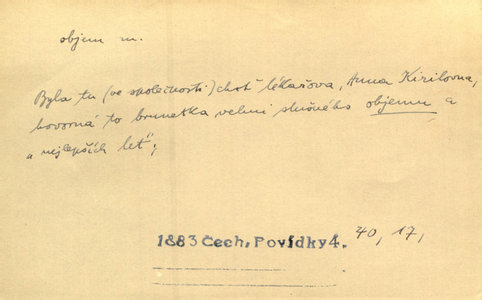 objem m.
Byla tu (ve společnosti) choť lékařova, Anna Kirilovna,
hovorná to brunetka velmi slušného objemu a
v nejlepších let";
1883 Čech, Povídky 4. 40, 17,